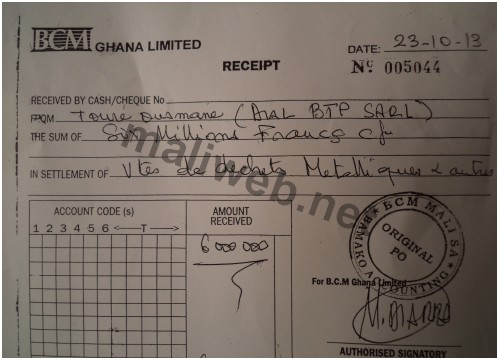 BCM GHANA LIMITED
DATE: 23-10-13
RECEIPT
Nº 005044
RECEIVED BY CASH/CHEQUE No
FROM Toure Ousmane (DIAL BTP SARL)
THE SUM OF Six Millions Francs cfa
IN SETTLEMENT OF Vtes de dechets Metalliques & autres
maliweb.net
ACCOUNT CODE (s)
AMOUNT RECEIVED
1 2 3 4 5 6 T
6 000 000
BCM MALI SA
ORIGINAL
PO
BAMAKO ACCOUNTING
For B.C.M Ghana Limited
M. DIARRA
AUTHORISED SIGNATORY